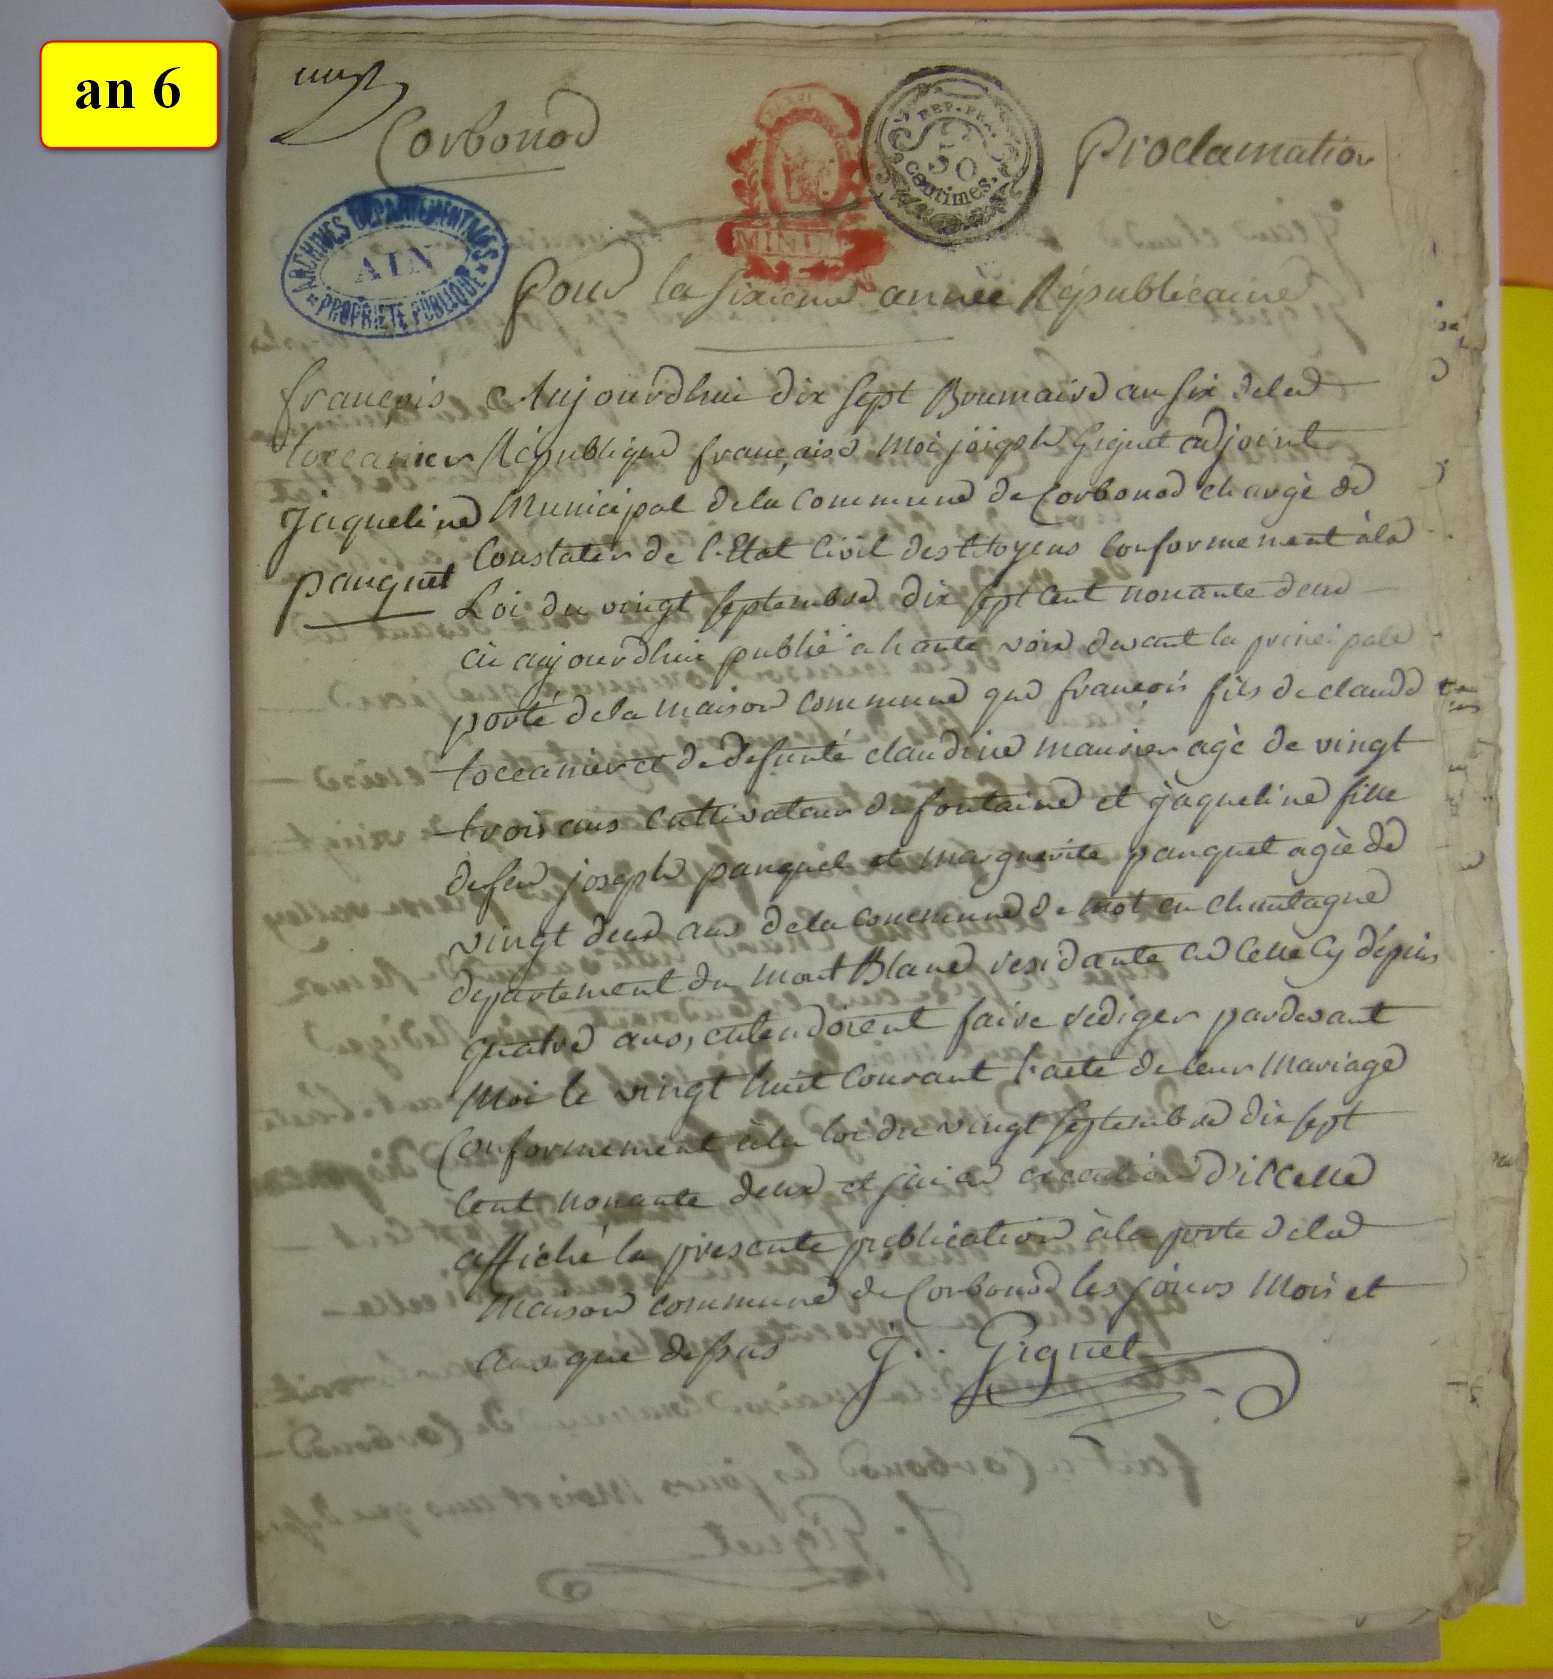 an 6
Corbonod
Proclamation
REP. FRA.
50
centimes.
ARCHIVES DEPARTEMENTALES
AIN
PROPRIETE PUBLIQUE
Pour la sixieme année Républicaine
françois
toccanier
Jaqueline
panquet
Aujourdhui dix sept Brumaire an six de la
République française moi joseph Giguet adjoint
Municipal de la commune de Corbonod chargé de
Constater de l'Etat Civil des Citoyens Conformement à la
Loi du vingt septembre dix sept cent nonante deux
ai aujourdhui publié a haute voix devant la principale
porte de la maison commune que françois fils de claude
toccanier et de defunte claudine maurier agé de vingt
trois ans cultivateur de fontaine et jaqueline fille
de feu joseph panquet et marguerite panquet agée de
vingt deux ans de la commune de mot en chautagne
departement du mont Blanc residante en celle cy dépuis
quatre ans, entendoient faire rediger pardevant
moi le vingt huit courant l'acte de leur mariage
Conformement à la loi du vingt septembre dix sept
Cent nonante deux et j'ai en execution d'icelle
affiché la presente publication à la porte de la
maison commune de Corbonod les jours mois et
ans que dessus J. Giguet